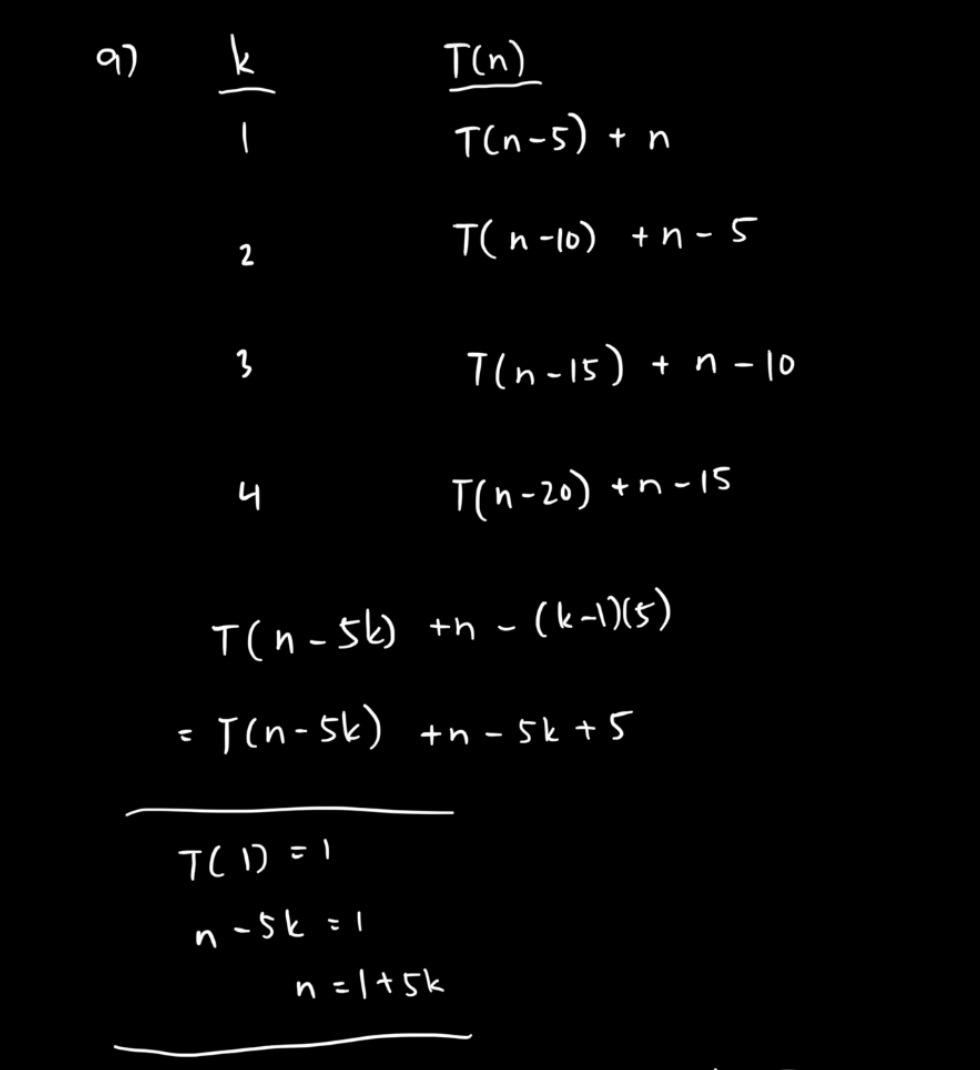 a) k T(n)
1 T(n-5) + n
2 T(n-10) + n - 5
3 T(n-15) + n - 10
4 T(n-20) + n - 15
T(n-5k) + n - (k-1)(5)
= T(n-5k) + n - 5k + 5
T(1) = 1
n - 5k = 1
n = 1 + 5k